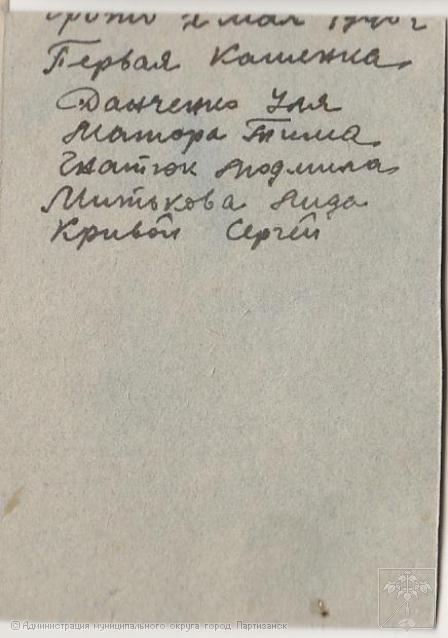 фото 2 мая 1940 г
Первая Каменка
Данченко Уля
Матора Тима
Гнатюк Людмила
Митькова Лида
Кривой Сергей
© Администрация муниципального округа город Партизанск